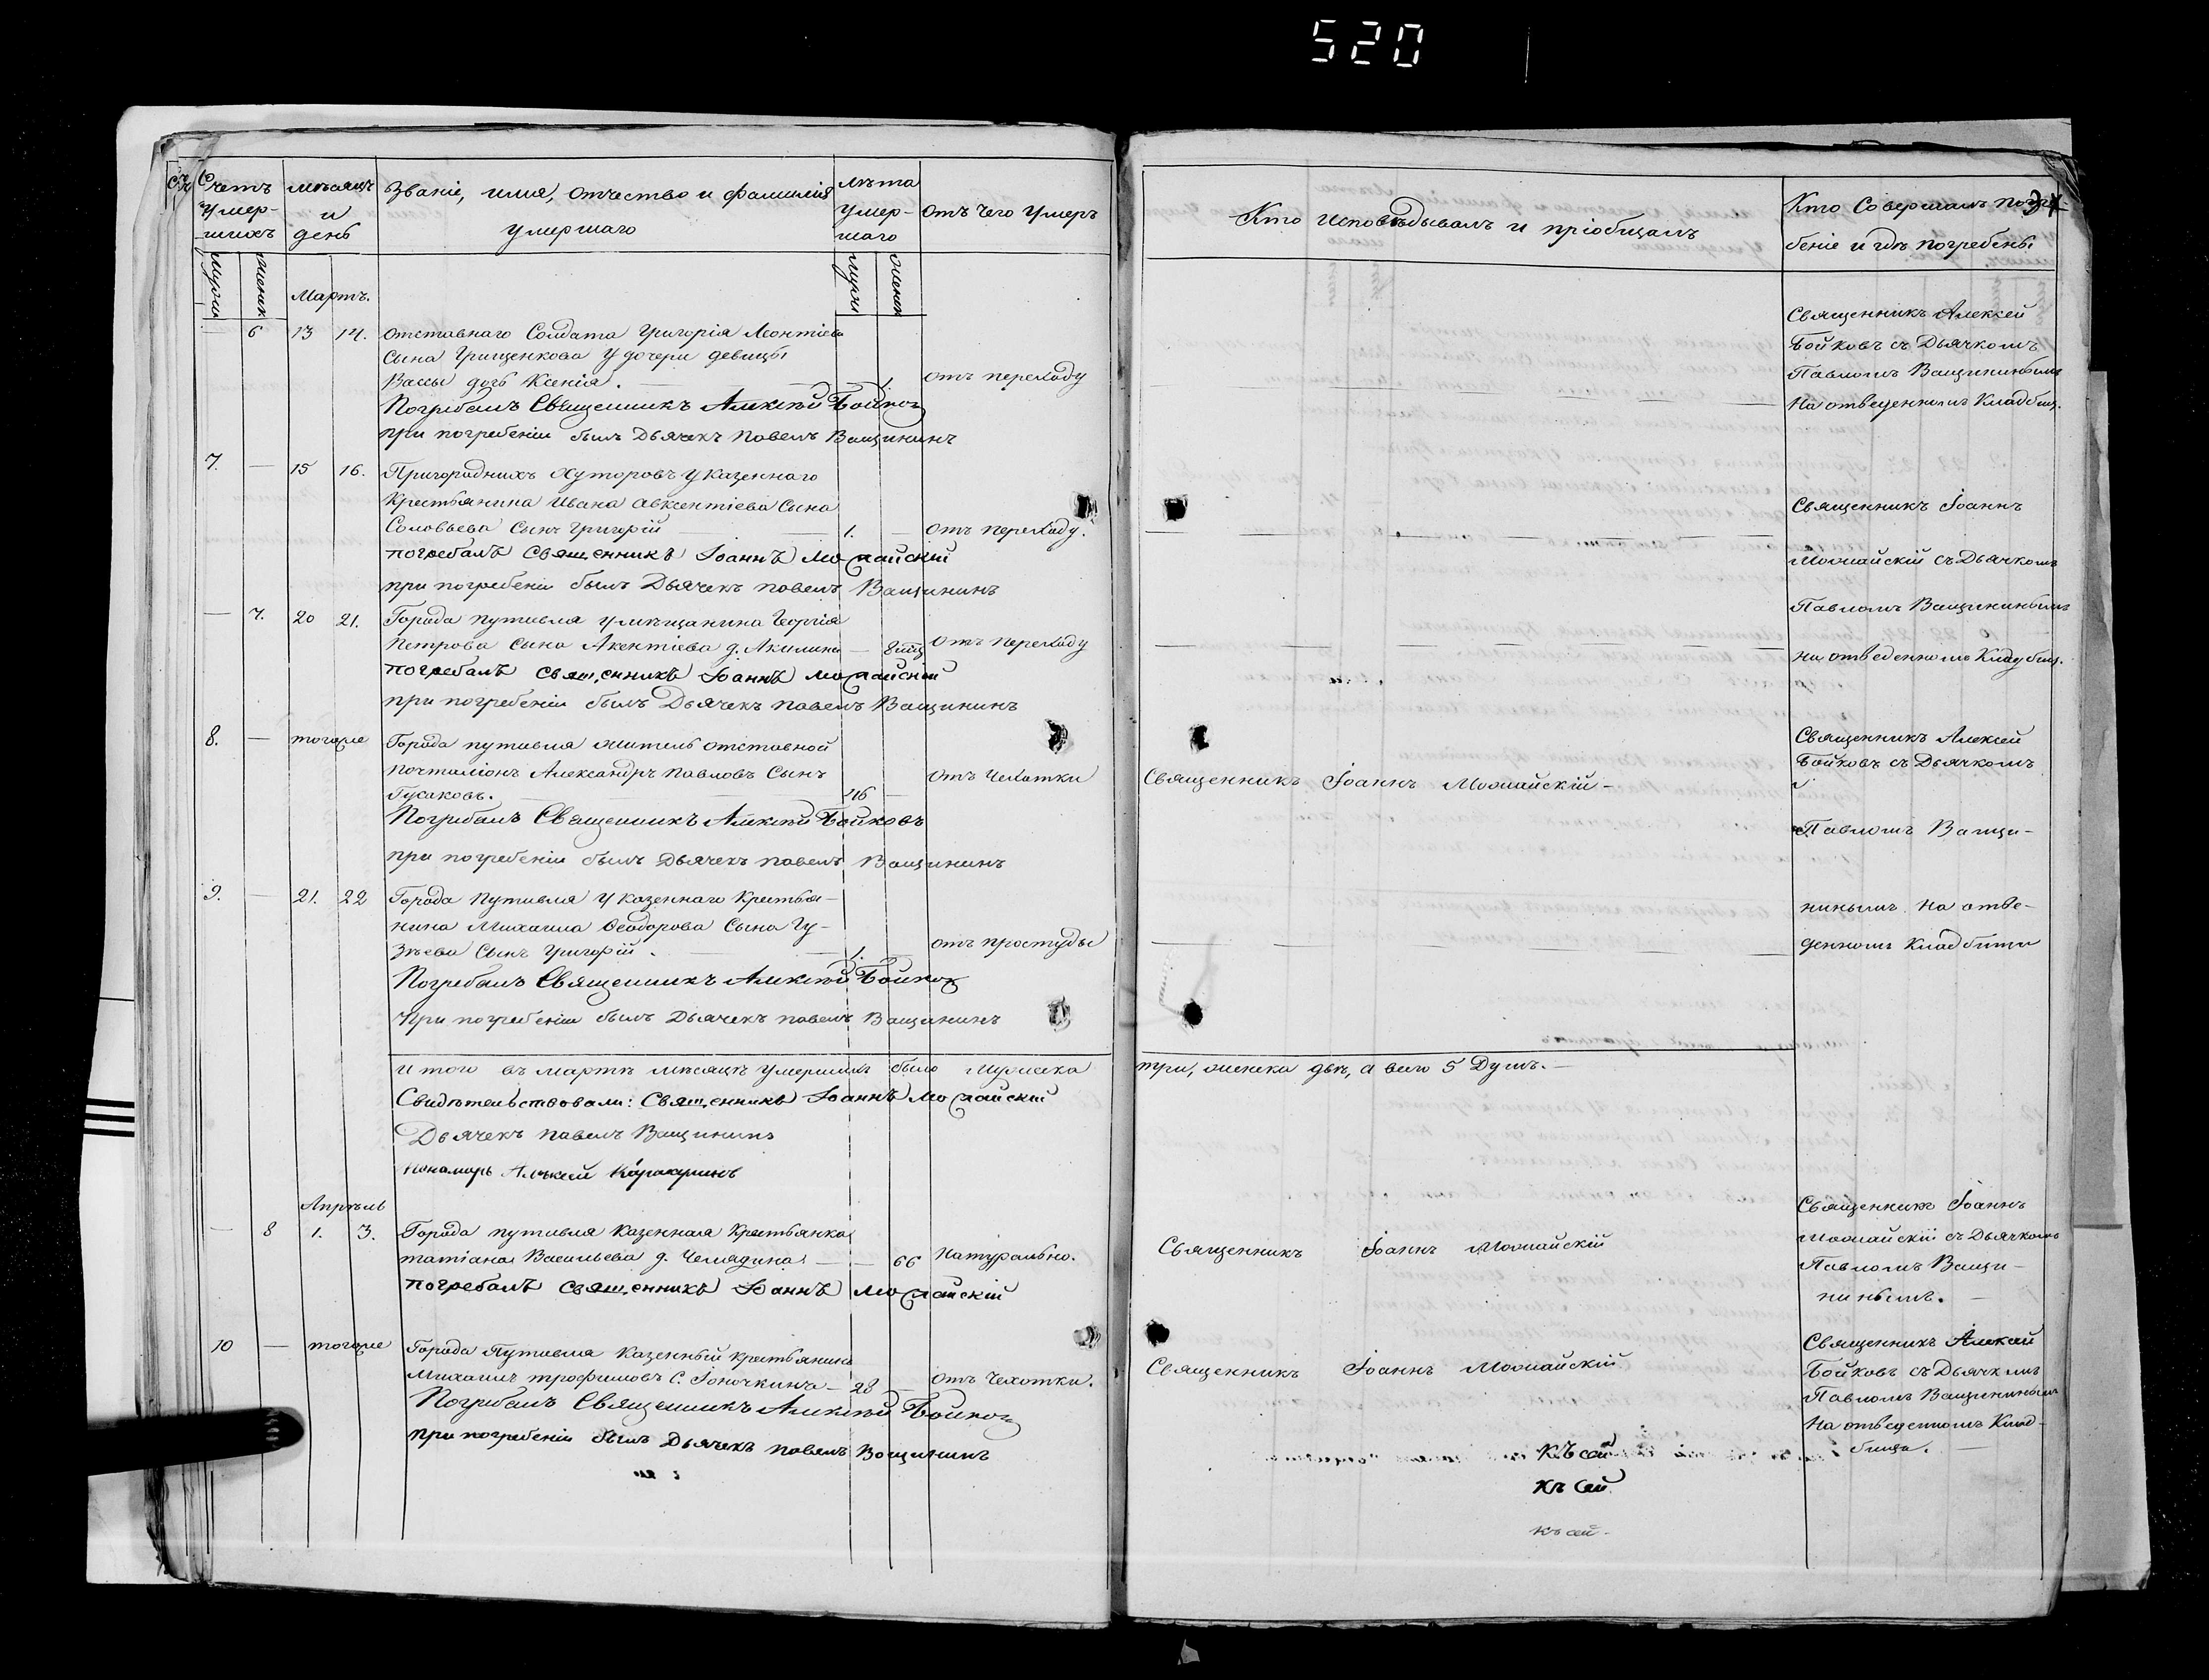 520
Счетъ умер-шихъ
мѣсяцъ и день
Званіе, имя, отчество и фамилія
умершаго
лѣта умер-шаго
Отъ чего умеръ
Кто исповѣдывалъ и пріобщалъ
Кто Совершалъ погре-
беніе и гдѣ погребены
женск
Мартъ.
6 13 14. Отставнаго Солдата Григорія Леонтіева
Сына Грищенкова у дочери девицы
Вассы дочь Ксенія. 1. отъ переходу
Погребалъ Священникъ Алексѣй Бойковъ
при погребеніи былъ Дьячекъ Павелъ Ващининъ
Священникъ Алексей
Бойковъ съ Дьячкомъ
Павломъ Ващининымъ
На отведенномъ Кладбищ.
7. — 15 16. Пригородныхъ Хуторовъ у казеннаго
Крестьянина Ивана Авксентіева Сына
Соловьева Сынъ Григорій 1. отъ переходу.
погребалъ Священникъ Іоаннъ Можайскій
при погребеніи былъ Дьячекъ павелъ Ващининъ
Священникъ Іоаннъ
Можайскій съ Дьячкомъ
Павломъ Ващининымъ
на отведенномъ Кладбищ.
— 7. 20 21. Города путивля у мѣщанина Георгія
Петрова сына Акентіева д. Акилина — 8 отъ переходу
погребалъ священникъ Іоаннъ Можайскій
при погребеніи былъ Дьячекъ павелъ Ващининъ
8. — тогоже Города путивля житель отставной
почталіонъ Александръ Павловъ Сынъ
Гусаковъ. 46 — отъ Чехотки
Священникъ Іоаннъ Можайскій —
Погребалъ Священникъ Алексѣй Бойковъ
при погребеніи былъ Дьячекъ павелъ Ващининъ
Священникъ Алексей
Бойковъ съ Дьячкомъ
Павломъ Ващи-
нинымъ на отве-
денномъ Кладбищи
9. — 21. 22 Города Путивля у казеннаго крестья-
нина Михаила Ѳеодорова Сына Гу-
зѣева Сынъ Григорій. 1. — отъ простуды
Погребалъ Священникъ Алексѣй Бойковъ
При погребеніи былъ Дьячекъ павелъ Ващининъ
Итого въ мартѣ мѣсяцѣ умершихъ было мужеска три, женска двѣ, а всего 5 Душъ. —
Свидѣтельствовали: Священникъ Іоаннъ Можайскій
Дьячекъ павелъ Ващининъ
пономарь Алѣксей
Апрѣль
— 8 1. 3. Города путивля казенная Крестьянка
татіана Васильева д. Челядина — — 66 Натурально.
Священникъ Іоаннъ Можайскій
погребалъ священникъ Іоаннъ Можайскій
Священникъ Іоаннъ
Можайскій съ Дьячкомъ
Павломъ Ващи-
нинымъ. —
10 — тогоже Города Путивля Казенный крестьянинъ
Михаилъ трофимовъ С. — 28 — отъ Чехотки.
Священникъ Іоаннъ Можайскій
Погребалъ Священникъ Алексѣй Бойковъ
при погребеніи былъ Дьячекъ павелъ Ващининъ
Священникъ Алексей
Бойковъ съ Дьячкмъ
Павломъ Ващининымъ
На отведенномъ Клад-
бищи. —
Къ сей
Къ сей
къ сей